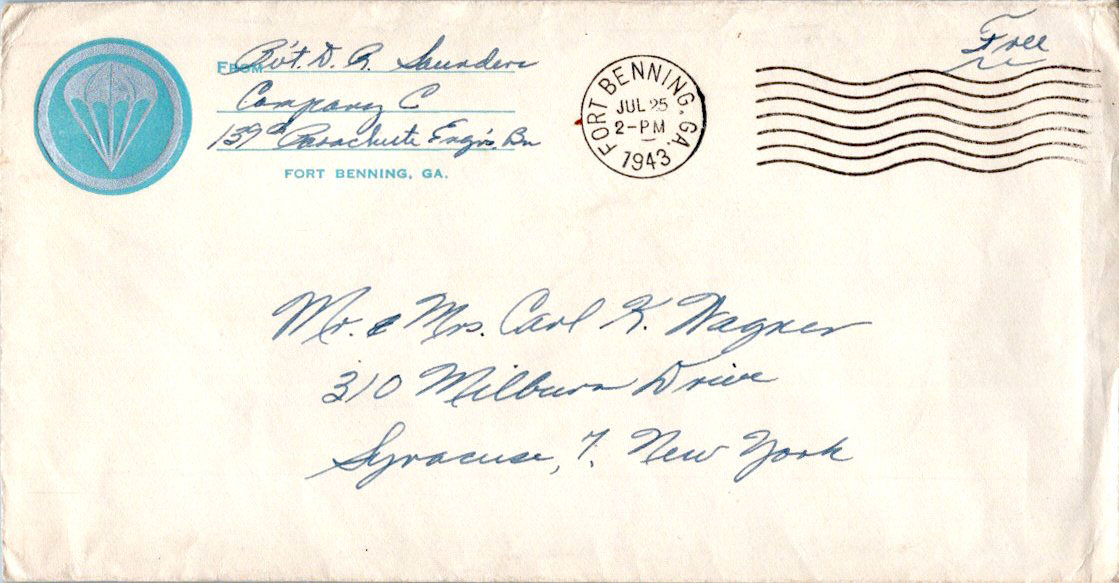 FROM Pvt. D. R. Saunders
Company C
139th Parachute Engrs. Bn
FORT BENNING, GA.
FORT BENNING, GA.
JUL 25
2-PM
1943
Free
Mr. & Mrs. Carl K. Wagner
310 Milburn Drive
Syracuse, 7. New York